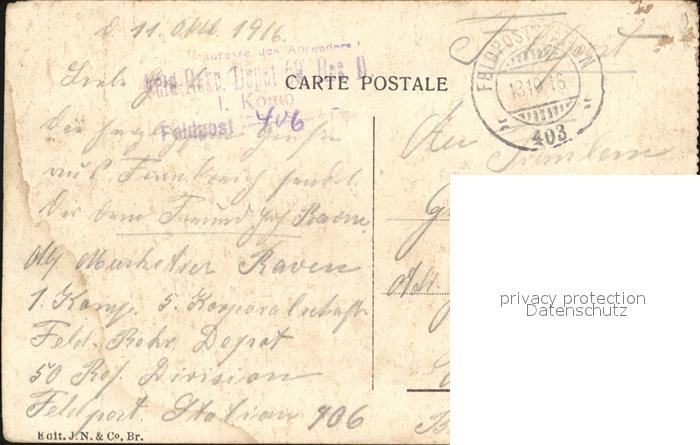 d. 11. Okt. 1916.
Feldpost
Adresse des Absenders
Feld. Rekr. Depot 50. Res. D
1. Komp
Feldpost 406
CARTE POSTALE
FELDPOSTSTATION
13.10.16
403
Liebe
Die herzlichsten Grüße
aus Frankreich sendet
Dir dein Freund Joh Raven
Abj. Musketier Raven
1. Komp. 5. Korporalschaft
Feld. Rekr. Depot
50 Res. Division
Feldpost. Station 406
An
Fräulein
Edit. J. N. & Co, Br.
privacy protection
Datenschutz